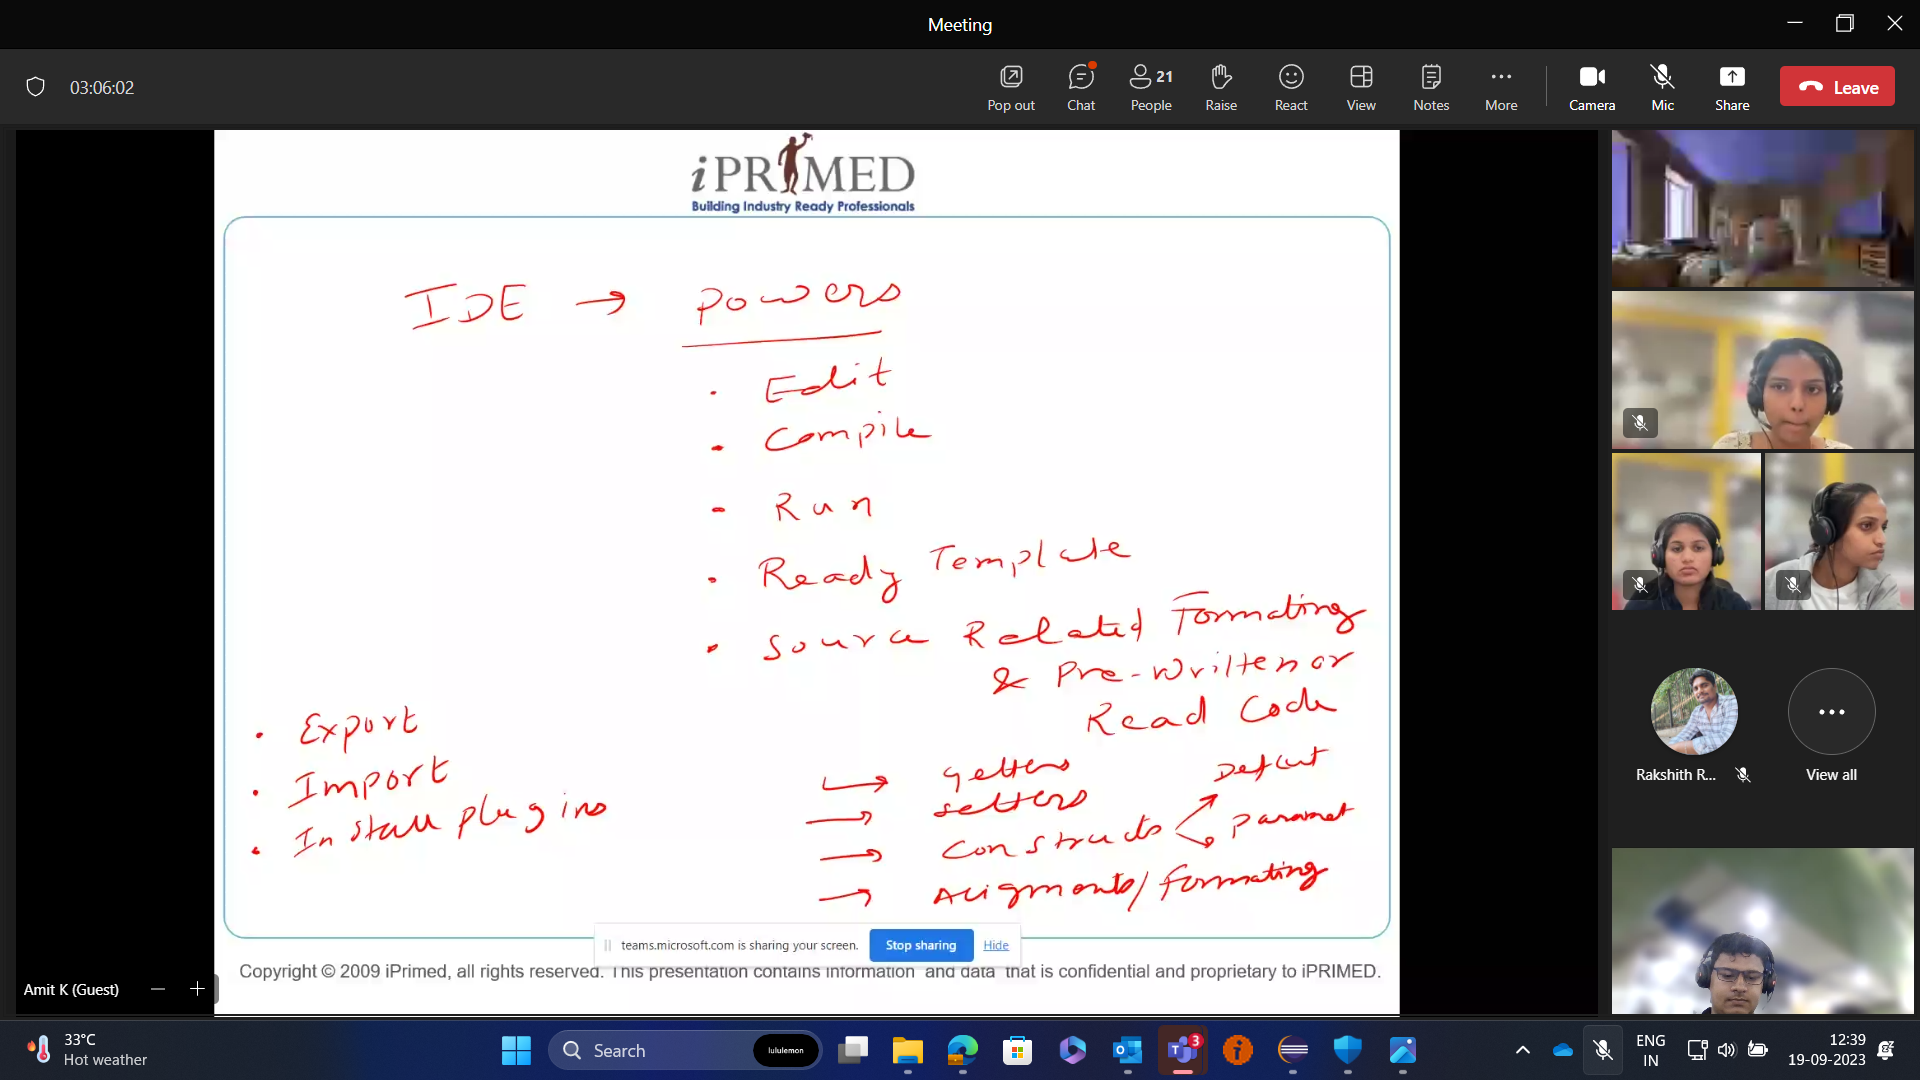 Meeting
03:06:02
Pop out
Chat
21
People
Raise
React
View
Notes
More
Camera
Mic
Share
Leave
iPRIMED
Building Industry Ready Professionals
IDE → Powers
• Edit
• Compile
• Run
• Ready Template
• Source Related Formating
& Pre-written or
Read Code
• Export
• Import
• Install plugins
→ getters
→ setters
→ Constructs
Default
Paramet
→ Aligments/Formating
teams.microsoft.com is sharing your screen.
Stop sharing
Hide
Copyright © 2009 iPrimed, all rights reserved. This presentation contains information and data that is confidential and proprietary to iPRIMED.
Amit K (Guest)
Rakshith R...
View all
33°C
Hot weather
Search
lululemon
3
ENG
IN
12:39
19-09-2023